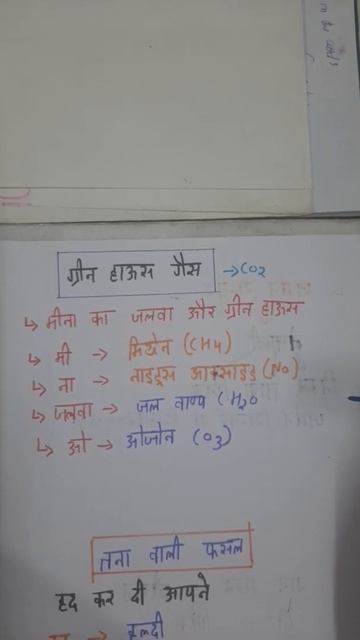 ग्रीन हाऊस गैस → CO2
↳ मीना का जलवा और ग्रीन हाऊस
↳ मी → मिथेन (CH4)
↳ ना → नाइट्रस आक्साइड (No)
↳ जलवा → जल वाष्प (H2O
↳ ओ → ओजोन (O3)
तना वाली फसल
हद कर दी आपने
हल्दी